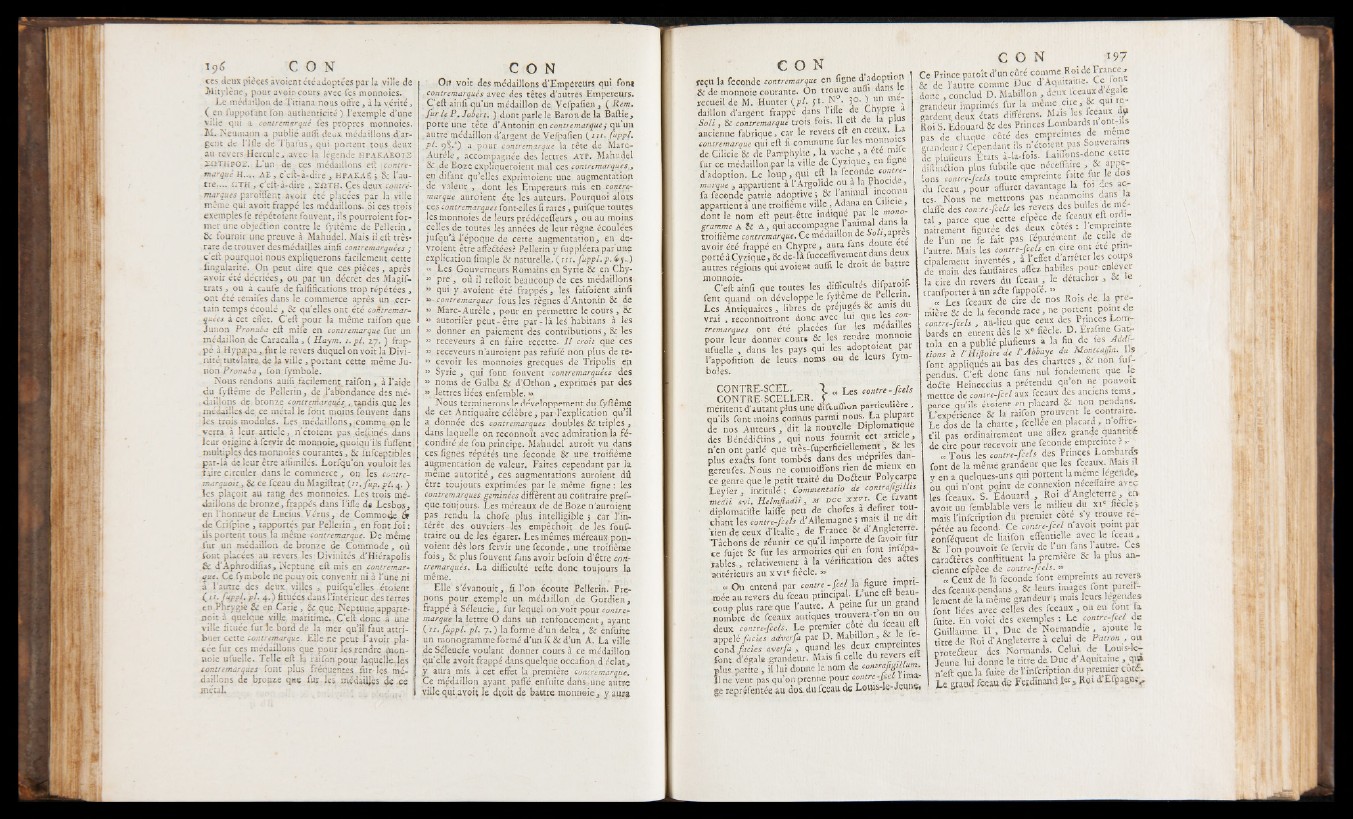 196 CON CON
ces deux pièces avoient été adoptées par la ville de
Mitylène, pour avoir cours avec ses monnoies.
Le médaillon de Titiana nous offre, à la vérité,
( en supposant son authenticité ) l'exemple d'une
ville qui a contremarqué ses propres monnoies.
M. Neumann a publié aussi deux médaillons d'ar-
gent de l'Isle de Thasus, qui portent tous deux
au revers Hercule, avec la légende ΗΡΑΚΛΕΟΥΣ
ΣΩΤΗΡΟΣ. L'un de ces médaillons est contre-
marqué Η.... ΑΕ, c'est-à-dire, ΗΡΑΚΛΕ; & l'au-
tre.... ΣΤΗ, c'est-à-dire, ΣΩΤΗ. Ces deux contre-
marques paroissent avoir été placées par la ville
même qui avoit frappé les médaillons. Si ces trois
exemples se répétoient souvent, ils pourroient for-
mer une objection contre le système de Pellerin,
& fournir une preuve à Mahudel. Mais il est très-
rare de trouver des médailles ainsi contremarquées ;
c'est pourquoi nous expliquerons facilement cette
singularité. On peut dire que ces pièces, après
avoir été décriées, ou par un décret des Magis-
trats, ou à cause de falsifications trop répétées,
ont été remises dans le commerce après un cer-
tain temps écoulé, & qu'elles ont été contremar-
quées à cet effet. C'est pour la même raison que
Junon Pronuba est mise en contremarque sur un
médaillon de Caracalla, ( Haym. 1. pl. 27. ) frap-
pé à Hypæpa, sur le revers duquel on voit la Divi-
nité tutelaire de la ville, portant cette même Ju-
non Pronuba, son symbole.
Nous rendons aussi facilement raison, à l'aide
du système de Pellerin, de l'abondance des mé-
daillons de bronze contremarqués, tandis que les
médailles de ce métal le sont moins souvent dans
les trois modules. Les médaillons, comme on le
verra à leur article, n'étoient pas destinés dans
leur origine à servir de monnoie, quoiqu'ils fussent
multiples des monnoies courantes, & susceptibles
par-là de leur être assimilés. Lorsqu'on vouloit les
faire circuler dans le commerce, on les contre-
marquoit, & ce sceau du Magistrat (11. sup. pl. 4. )
les plaçoit au rang des monnoies. Les trois mé-
daillons de bronze, frappés dans l'isle de Lesbos,
en l'honneur de Lucius Vérus, de Commode &
de Crispine, rapportés par Pellerin, en font foi :
ils portent tous la même contremarque. De même
sur un médaillon de bronze de Commode, où
sont placées au revers les Divinités d'Hiérapolis
& d'Aphrodisias, Neptune est mis en contremar-
que. Ce symbole ne pouvoit convenir ni à l'une ni
à l'autre des deux villes, puisqu'elles étoient
(11. suppl. pl. 4.) situées dans l'intérieur des terres
en Phrygie & en Carie, & que Neptune apparte-
noit à quelque ville maritime. C'est donc à une
ville située sur le bord de la mer qu'il faut attri-
buer cette contremarque. Elle ne peut l'avoir pla-
cée sur ces médaillons que pour les rendre mon-
noie usuelle. Telle est la raison pour laquelle les
contremarques sont plus fréquentes sur les mé-
daillons de bronze que sur les médailles de ce
métal.
On voit des médaillons d'Empereurs qui sont
contremarqués avec des têtes d'autres Empereurs.
C'est ainsi qu'un médaillon de Vespasien, ( Rem.
sur le P. Jobert. ) dont parle le Baron de la Bastie,
porte une tête d'Antonin en contremarque; qu'un
autre médaillon d'argent de Vespasien ( 111. suppl.
pl. 98.) a pour contremarque la tête de Marc-
Aurèle, accompagnée des lettres ΑΥΡ. Mahudel
& de Boze expliqueroient mal ces contremarques,
en disant qu'elles exprimoient une augmentation
de valeur, dont les Empereurs mis en contre-
marque auroient été les auteurs. Pourquoi alors
ces contremarques sont-elles si rares, puisque toutes
les monnoies de leurs prédécesseurs, ou au moins
celles de toutes les années de leur règne écoulées
jusqu'à l'époque de cette augmentation, en de-
vroient être affectées? Pellerin y suppléera par une
explication simple & naturelle. ( 111. suppl. p. 65.)
» Les Gouverneurs Romains en Syrie & en Chy-
» pre, où il restoit beaucoup de ces médaillons
» qui y avoient été frappés, les faisoient ainsi
» contremarquer sous les règnes d'Antonin & de
» Marc-Aurèle, pour en permettre le cours, &
» autoriser peut-être par-là les habitans à les
» donner en paiement des contributions, & les
» receveurs à en faire recette. Il croit que ces
» receveurs n'auroient pas refusé non plus de re-
» cevoir les monnoies grecques de Tripolis en
» Syrie, qui sont souvent contremarquées des
» noms de Galba & d'Othon, exprimés par des
» lettres liées ensemble. »
Nous terminerons le développement du système
de cet Antiquaire célèbre, par l'explication qu'il
a donnée des contremarques doubles & triples,
dans laquelle on reconnoît avec admiration la fé-
condité de son principe. Mahudel auroit vu dans
ces signes répétés une seconde & une troisième
augmentation de valeur. Faites cependant par la
même autorité, ces augmentations auroient dû
être toujours exprimées par le même signe : les
contremarques geminées diffèrent au contraire pres-
que toujours. Les méreaux de de Boze n'auroient
pas rendu la chose plus intelligible ; car l'in-
térêt des ouvriers les empêchoit de les sous-
traire ou de les égarer. Les mêmes méreaux pou-
voient dès lors servir une seconde, une troisième
fois, & plus souvent sans avoir besoin d'être con-
tremarqués. La difficulté reste donc toujours la
même.
Elle s'évanouit, si l'on écoute Pellerin. Pre-
nons pour exemple un médaillon de Gordien,
frappé à Séleucie, sur lequel on voit pour contre-
marque la lettre O dans un renfoncement, ayant
(11. suppl. pl. 7. ) la forme d'un delta, & ensuite
un monogramme formé d'un K & d'un A. La ville
de Séleucie voulant donner cours à ce médaillon
qu'elle avoit frappé dans quelque occasion d'éclat,
y aura mis à cet effet la première contremarque.
Ce médaillon ayant passé ensuite dans une autre
ville qui avoit le droit de battre monnoie, y aura
CON CON 197
reçu la seconde contremarque en signe d'adoption
& de monnoie courante. On trouve aussi dans le
recueil de M. Hunter (pl. 51. N°. 30. ) un mé-
daillon d'argent frappé dans l'isle de Chypre à
Soli, & contremarque trois fois. Il est de la plus
ancienne fabrique, car le revers est en creux. La
contremarque qui est si commune sur les monnoies
de Cilicie & de Pamphylie, la vache, a été mise
sur ce médaillon par la ville de Cyzique, en signe
d'adoption. Le loup, qui est la seconde contre-
marque, appartient à l'Argolide ou à la Phocide,
sa seconde patrie adoptive ; & l'animal inconnu
appartient à une troisième ville, Adana en Cilicie,
dont le nom est peut-être indiqué par le mono-
gramme A & Δ, qui accompagne l'animal dans la
troisième contremarque. Ce médaillon de Soli, après
avoir été frappé en Chypre, aura sans doute été
porté à Cyzique, & de-là successivement dans deux
autres régions qui avoient aussi le droit de battre
monnoie.
C'est ainsi que toutes les difficultés disparois-
sent quand on développe le système de Pellerin.
Les Antiquaires, libres de préjugés & amis du
vrai, reconnoîtront donc avec lui que les con-
tremarques ont été placées sur les médailles
pour leur donner cours & les rendre monnoie
usuelle, dans les pays qui les adoptoient par
l'apposition de leurs noms ou de leurs sym-
boles.
CONTRE-SCEL. } « Les contre-scels
CONTRE-SCELLER. }
méritent d'autant plus une discussion particulière,
qu'ils sont moins connus parmi nous. La plupart
de nos Auteurs, dit la nouvelle Diplomatique
des Bénédictins, qui nous fournit cet article,
n'en ont parlé que très-superficiellement, & les
plus exacts sont tombés dans des méprises dan-
gereuses. Nous ne connoissons rien de mieux en
ce genre que le petit traité du Docteur Polycarpe
Leyser, intitulé : Commentatio de contrasigillis
medii ævi, Helmstadii, M DCC XXVI. Ce savant
diplomatiste laisse peu de choses à desirer tou-
chant les contre-scels d'Allemagne ; mais il ne dit
rien de ceux d'Italie, de France & d'Angleterre.
Tâchons de réunir ce qu'il importe de savoir sur
ce sujet & sur les armoiries qui en sont insépa-
rables, relativement à la vérification des actes
antérieurs au XVIe siècle. »
« On entend par contre-scel la figure impri-
mée au revers du sceau principal. L'une est beau-
coup plus rare que l'autre. A peine sur un grand
nombre de sceaux antiques trouvera-t'on un ou
deux contre-scels. Le premier côté du sceau est
appelé facies adversa par D. Mabillon, & le se-
cond facies aversa, quand les deux empreintes
sont d'égale grandeur. Mais si celle du revers est
plus petite, il lui donne le nom de contrasigillum.
Il ne veut pas qu'on prenne pour contre-scel l'ima-
ge représentée au dos du sceau de Louis-le-Jeune.
Ce Prince paroît d'un côté comme Roi de France,
& de l'autre comme Duc d'Aquitaine. Ce sont
donc, conclud D. Mabillon, deux sceaux d'égale
grandeur imprimés sur la même cire, & qui re-
gardent deux états différens. Mais les sceaux du
Roi S. Edouard & des Princes Lombards n'ont-ils
pas de chaque côté des empreintes de même
grandeur ? Cependant ils n'étoient pas Souverains
de plusieurs Etats à-la-fois. Laissons-donc cette
distinction plus subtile que nécessaire, & appe-
lons contre-scels toute empreinte faite sur le dos
du sceau, pour assurer davantage la foi des ac-
tes. Nous ne mettrons pas néanmoins dans la
classe des contre-scels les revers des bulles de mé-
tal, parce que cette espèce de sceaux est ordi-
nairement figurée des deux côtés : l'empreinte
de l'un ne se fait pas séparément de celle de
l'autre. Mais les contre-scels en cire ont été prin-
cipalement inventés, à l'effet d'arrêter les coups
de main des faussaires assez habiles pour enlever
la cire du revers du sceau, le détacher, & le
transporter à un acte supposé. »
« Les sceaux de cire de nos Rois de la pre-
mière & de la seconde race, ne portent point de
contre-scels, au-lieu que ceux des Princes Lom-
bards en eurent dès le xe siècle. D. Erasme Gat-
tola en a publié plusieurs à la fin de ses Addi-
tions à l'Histoire de l'Abbaye du Montcassin. Ils
sont appliqués au bas des chartres, & non sus-
pendus. C'est donc sans nul fondement que le
docte Heineccius a prétendu qu'on ne pouvoit
mettre de contre-scel aux sceaux des anciens tems,
parce qu'ils étoient en placard & non pendans.
L'expérience & la raison prouvent le contraire.
Le dos de la charte, scellée en placard, n'offre-
t'il pas ordinairement une assez grande quantité
de cire pour recevoir une seconde empreinte ? »
« Tous les contre-scels des Princes Lombards
sont de la même grandeur que les sceaux. Mais il
y en a quelques-uns qui portent la même légende,
ou qui n'ont point de connexion nécessaire avec
les sceaux. S. Edouard, Roi d'Angleterre, en
avoit un semblable vers le milieu du XIe siècle ;
mais l'inscription du premier côté s'y trouve ré-
pétée au second. Ce contre-scel n'avoit point par
conséquent de liaison essentielle avec le sceau,
& l'on pouvoit se servir de l'un sans l'autre. Ces
caractères constituent la première & la plus an-
cienne espèce de contre-scels. »
« Ceux de la seconde sont empreints au revers
des sceaux pendans, & leurs images sont pareil-
lement de la même grandeur ; mais leurs légendes
sont liées avec celles des sceaux, ou en sont la
suite. En voici des exemples : Le contre-scel de
Guillaume II, Duc de Normandie, ajoute le
titre de Roi d'Angleterre à celui de Patron, ou
protecteur des Normands. Celui de Louis-le-
Jeune lui donne le titre de Duc d'Aquitaine, qui
n'est que la suite de l'inscription du premier côté.
Le grand sceau de Ferdinand Ier, Roi d'Espagne,